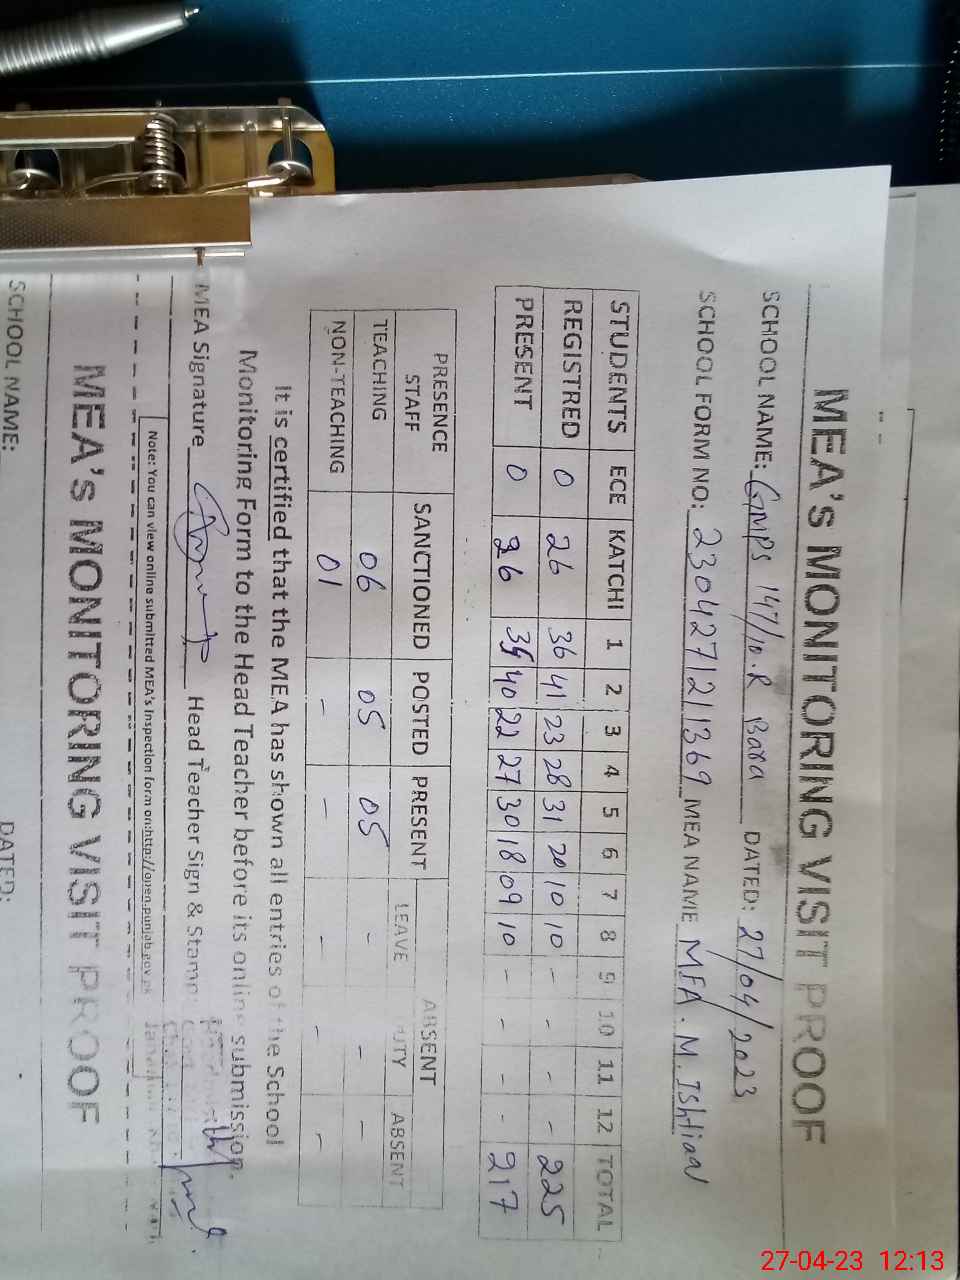 MEA's MONITORING VISIT PROOF
SCHOOL NAME: GMPS 147/10.R Bara DATED: 27/04/2023
SCHOOL FORM NO: 2304271211369 MEA NAME MEA. M. Ishtiaq
STUDENTS ECE KATCHI 1 2 3 4 5 6 7 8 9 10 11 12 TOTAL
REGISTRED 0 26 36 41 23 28 31 20 10 10 - - - - 225
PRESENT 0 26 35 40 22 27 30 18 09 10 - - - - 217
PRESENCE STAFF SANCTIONED POSTED PRESENT ABSENT
LEAVE DUTY ABSENT
TEACHING 06 05 05 - - -
NON-TEACHING 01 - - - - -
It is certified that the MEA has shown all entries of the School
Monitoring Form to the Head Teacher before its online submission.
MEA Signature Head Teacher Sign & Stamp:
Note: You can view online submitted MEA's Inspection form on:http://open.punjab.gov.pk
MEA's MONITORING VISIT PROOF
SCHOOL NAME: DATED:
27-04-23 12:13